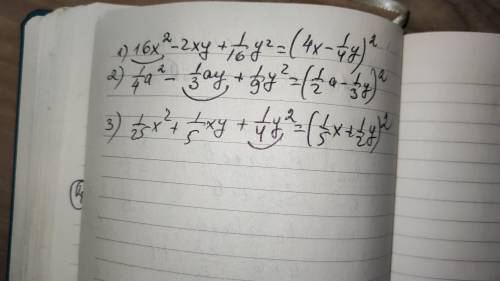 1) 16x² - 2xy + 1/16 y² = (4x - 1/4 y)²
2) 1/4 a² - 1/3 ay + 1/9 y² = (1/2 a - 1/3 y)²
3) 1/25 x² + 1/5 xy + 1/4 y² = (1/5 x + 1/2 y)²